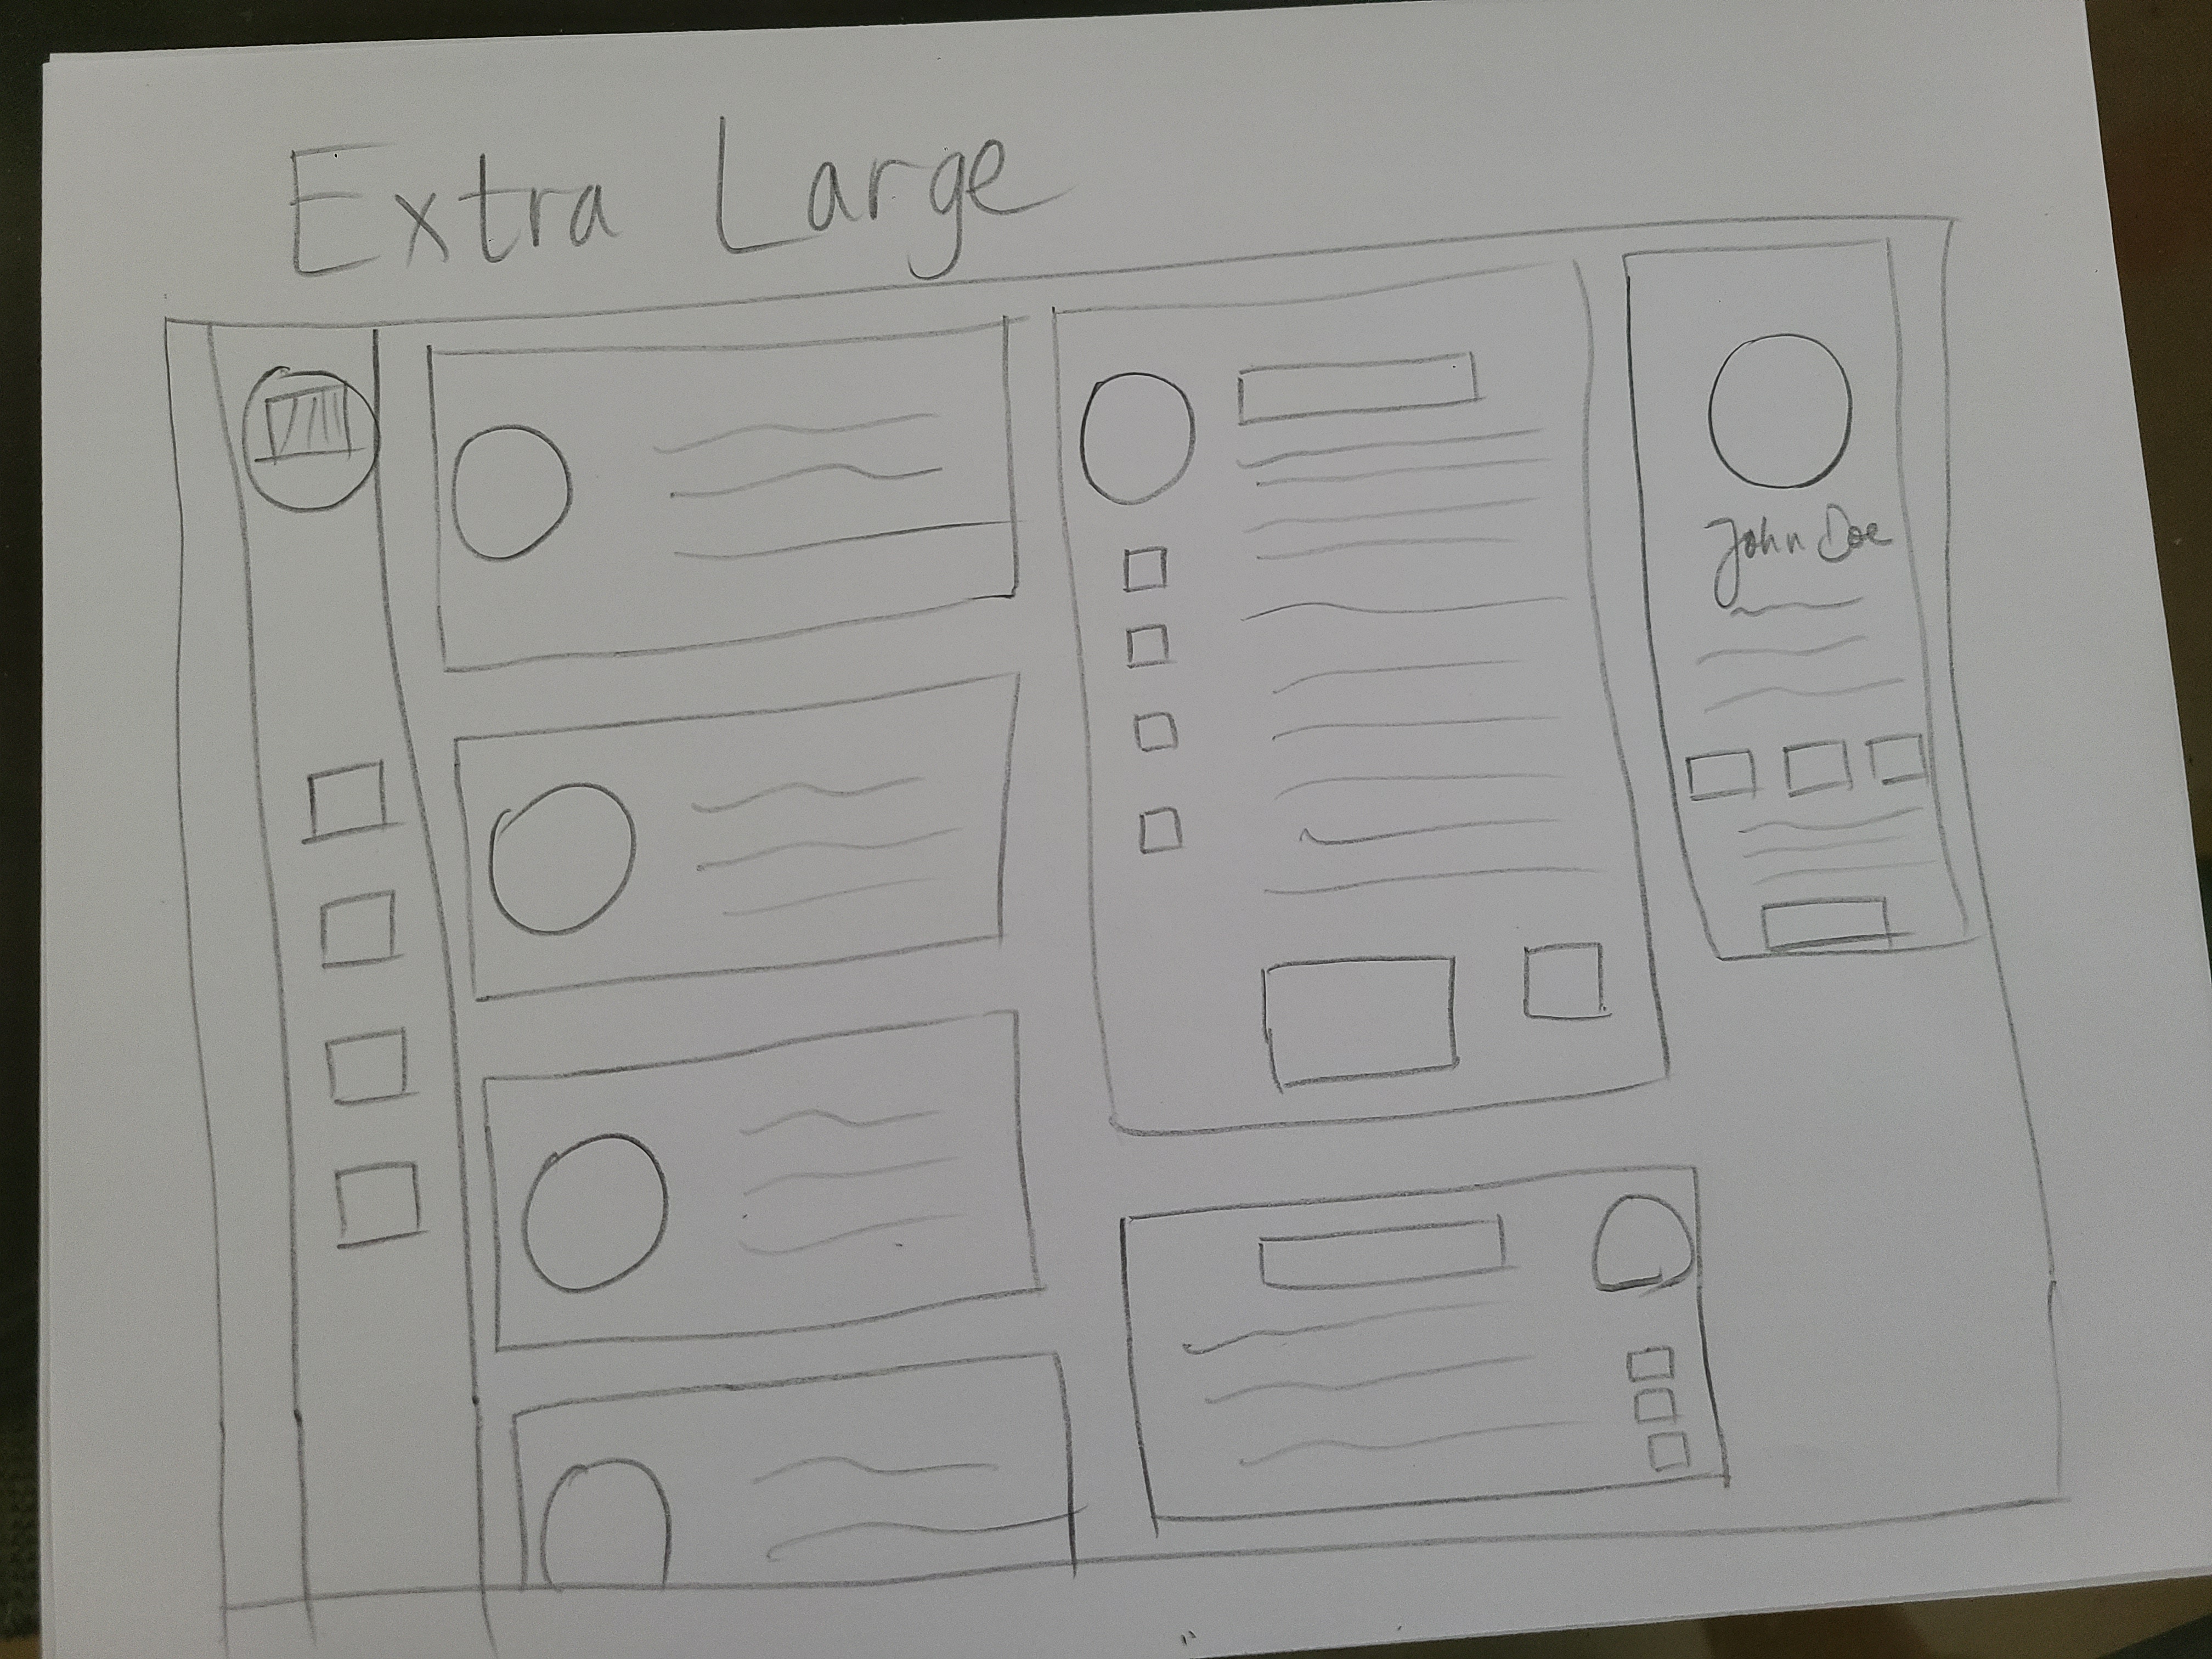 Extra Large
John Doe